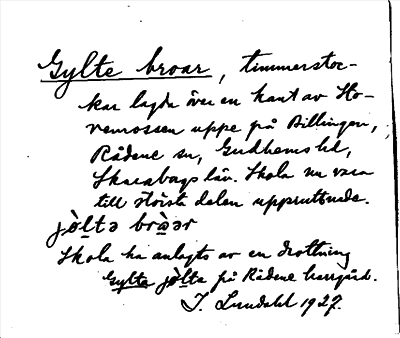 Gylte broar, timmerstoc-
kar lagda över en kant av Sto-
remossen uppe på Billingen,
Rådene sn, Gudhems hd,
Skarabogs län. Skola nu vara
till största delen uppruttnade.
jò̤ltə brò̤ər
Skola ha anlagts av en drottning
Gylta jò̤lta på Rådene herrgård.
J. Lundahl 1927.